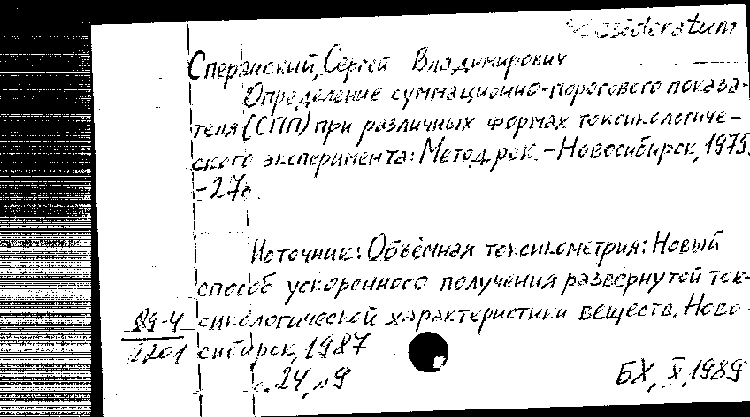 Desideratum
Сперанский, Сергей Владимирович
Определение суммационно-порогового показа-
теля (СПП) при различных формах токсикологиче-
ского эксперимента: Метод. рек. - Новосибирск, 1975.
- 27с.
Источник: Объёмная токсикометрия: Новый
способ ускоренного получения развёрнутой ток-
сикологической характеристики веществ. Ново-
сибирск, 1987
89-4
с. 24, 9
БХ, X, 1989